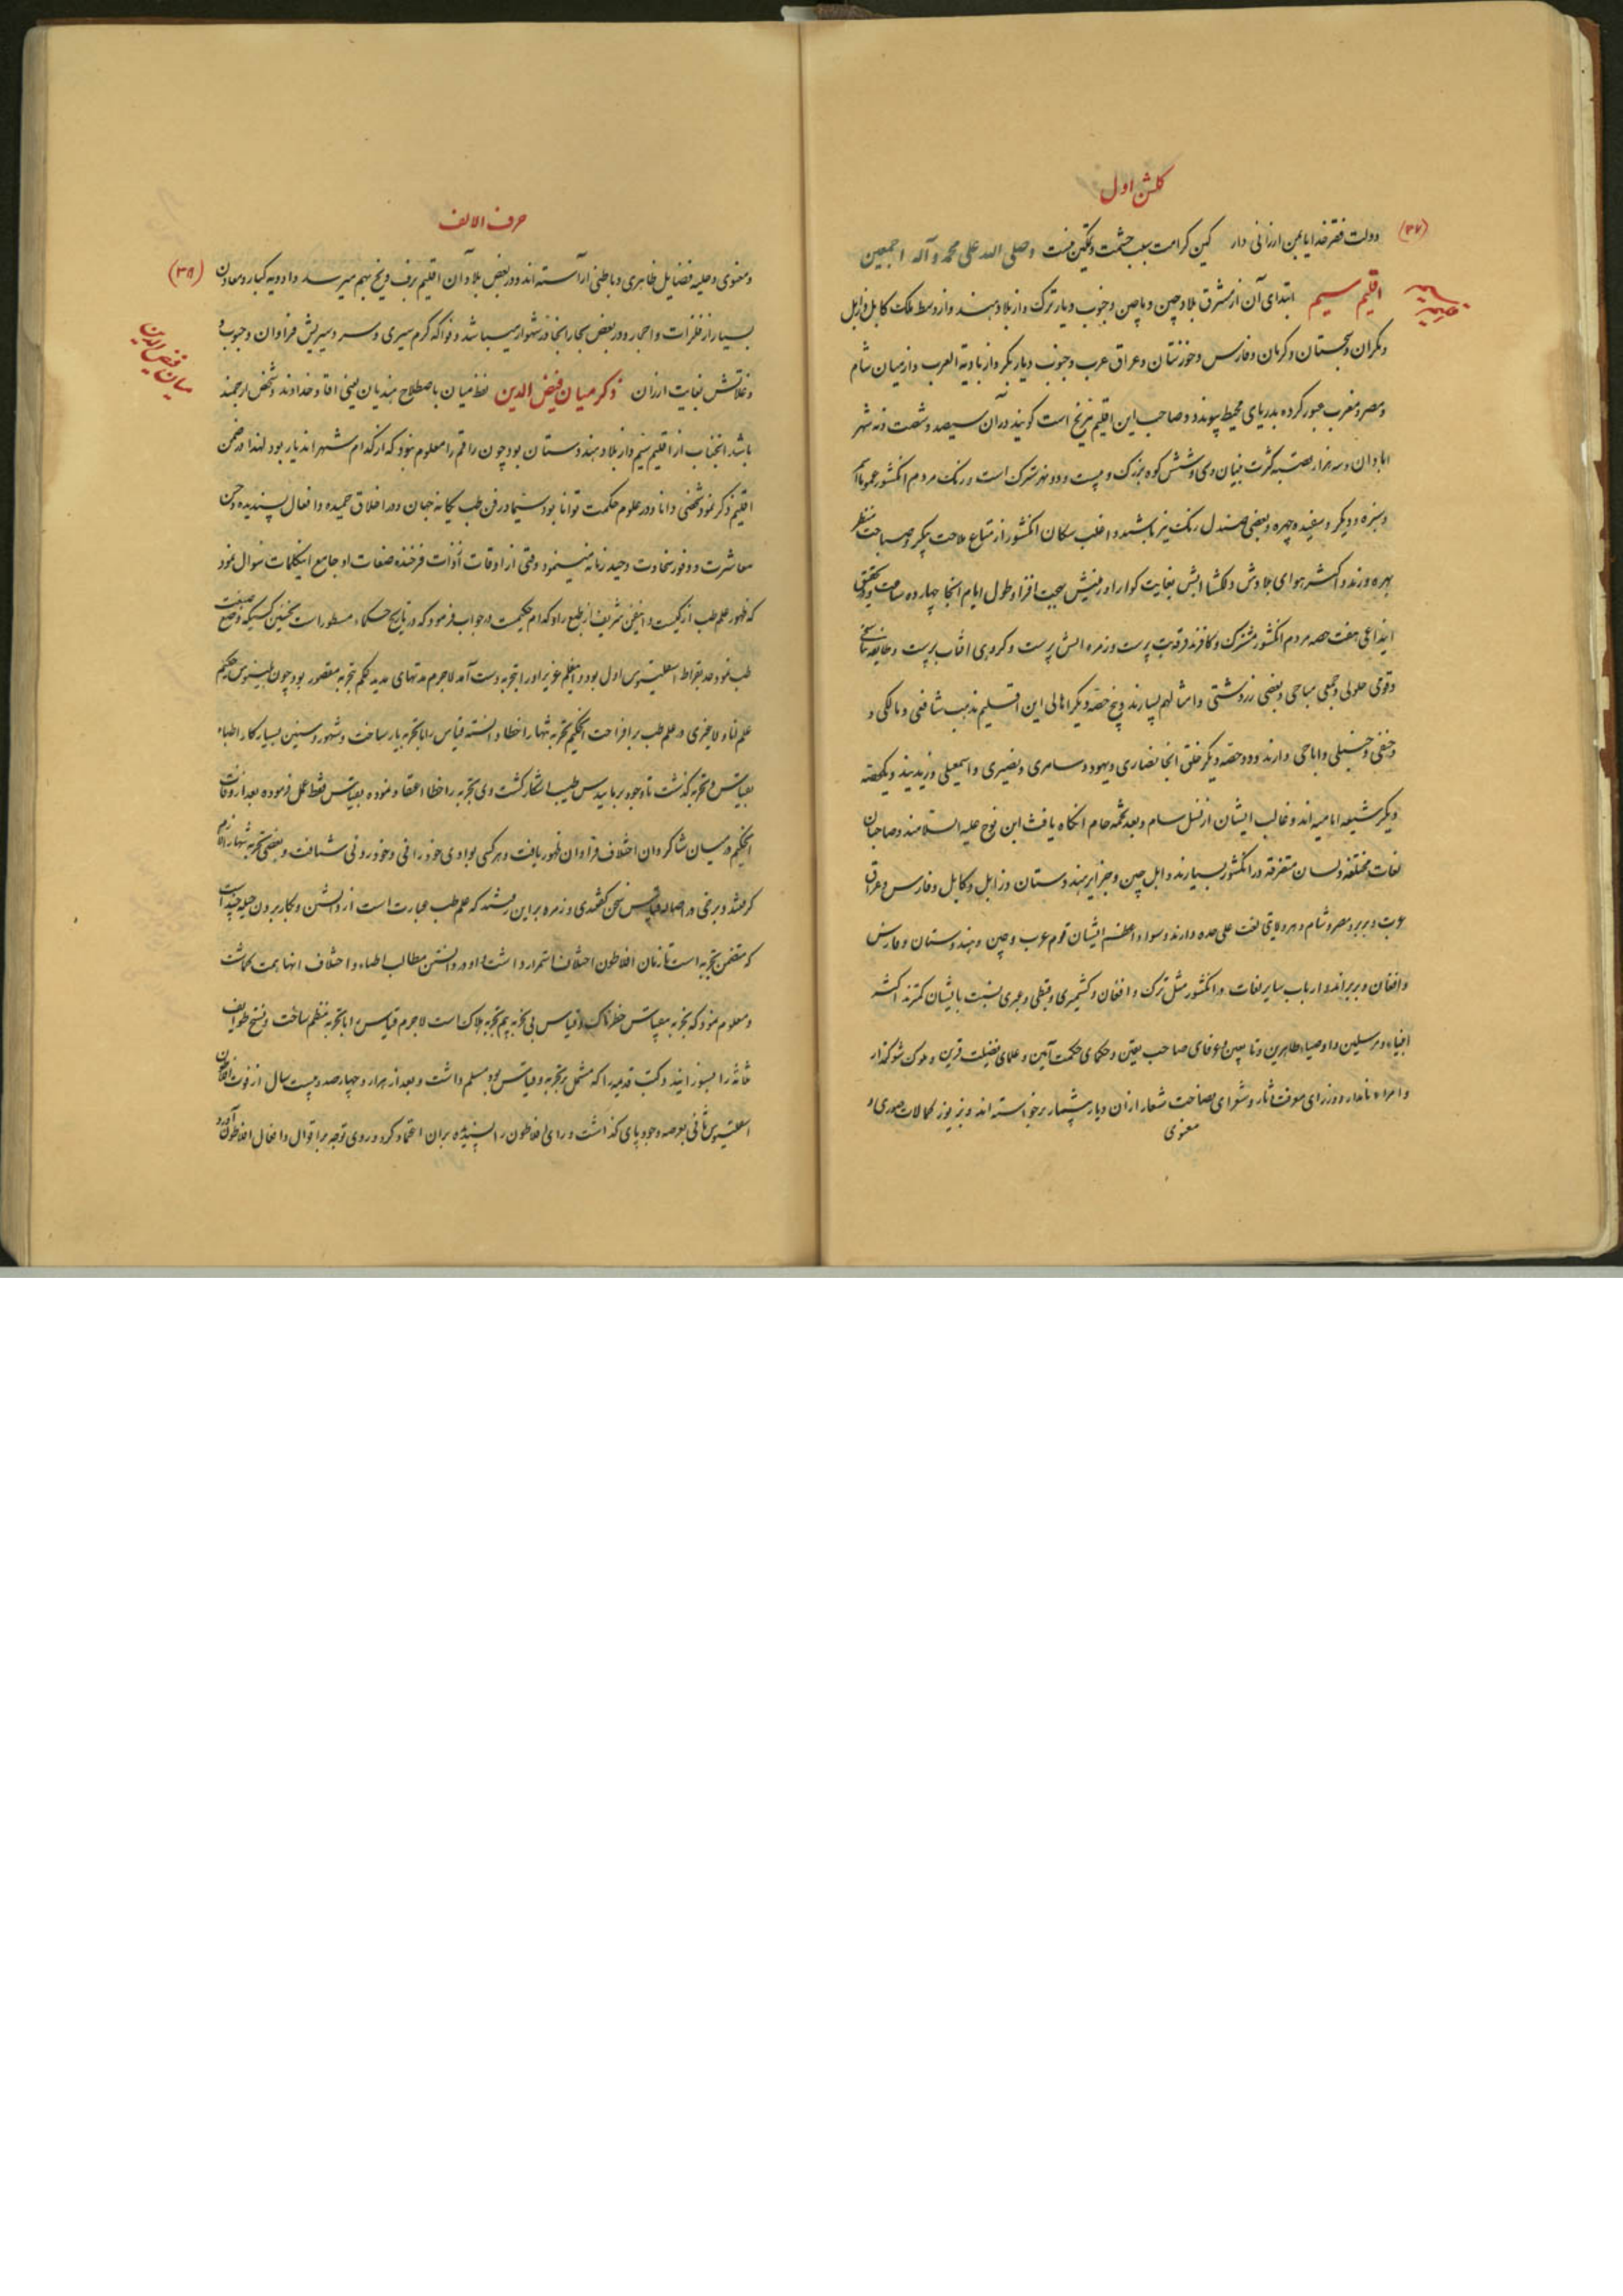 کلشن اول
(۳۷)
دولت فقر خدایا بمن ارزانی دار کین کرامت سبب حشمت و تمکین منست وصلی الله علی محمد و آله اجمعین
اقلیم سیم ابتدای آن از مشرق بلاد چین و ماچین و جنوب دیار ترک و از بلاد هند و از وسط ملک کابل و زابل
و مکران و سجستان و کرمان و فارس و خوزستان و عراق عرب و جنوب دیار بکر و از بادیة العرب و از میان شام
و مصر و مغرب عبور کرده بدریای محیط پیوندد و صاحب این اقلیم مریخ است کویند در آن سیصد و شصت و نه شهر
ابادان و سه هزار قصبه کثرت بنیان و سی و شش کوه بزرک و بیست و دو نهر سترک است و رنک مردم انکشور عموما
و سبزه و دیکر و سفیده چهره و بعضی صندل رنک نیز باشند و اغلب سکان انکشور از متاع ملاحت پیکر و صباحت منظر
بهره ورند و اکثر هوای بلادش دلکشا ابش بغایت کوارا و زمینش بهجت افزا و طول ایام انجا چهارده ساعت و بتحقیق
هفت حصه مردم انکشور مشرک و کافرند فرقه بت پرست و زمره اتش پرست و کروهی افتاب پرست و طایفه تناسخی
و قومی حلولی و جمعی مباحی و بعضی زردشتی و امثالهم بسیارند و پنج حصه دیکر اهالی این اقلیم مذهب شافعی و مالکی و
و حنفی و حنبلی و اباحی دارند و دو حصه دیکر خلق انجا نصاری و یهود و سامری و نصیری و اسمعیلی و زیدیند و یکحصه
دیکر شیعه امامیه اند و غالب ایشان از نسل سام و بعد تخمه حام انکاه یافث ابن نوح علیه السلامند و صاحبان
لغات مختلفه و لسان متفرقه در انکشور بسیارند و اهل چین و جزایر هندوستان و زابل و کابل و فارس و عراق
عرب و بربر و مصر و شام و هر ولایتی لغت علی حده دارند و سواد اعظم ایشان قوم عرب و چین و هندوستان و فارس
و افغان و بربراند و ارباب سایر لغات در انکشور مثل ترک و افغان و کشمیری و قبطی و عبری نسبت بایشان کمترند اکثر
انبیاء و مرسلین و اوصیاء طاهرین و تابعین و عرفای صاحب یقین و حکمای حکمت آیین و علمای فضیلت قرین و ملوک شوکت
و امراء نامدار و وزرای معرفت اثار و شعرای فصاحت شعار از ان دیار بیشمار برخواسته اند و بزیور کمالات صوری و
معنوی
حرف الالف
(۳۸)
و معنوی و حلیه فضایل ظاهری و باطنی اراسته اند و در بعض بلاد ان اقلیم برف و یخ بهم میرسد و ادویه کبار و معادن
بسیار از فلزات و احجار و در بعض بحار انجا در شهوار میباشد و فواکه کرم سیری و سردسیریش فراوان و حبوب و
و غلاتش بغایت ارزان ذکر میان فیض الدین لفظ میان باصطلاح هندیان یعنی اقا و خداوند و شخص ارجمند
میان فیض الدین
باشد انجناب از اقلیم سیم و از بلاد هندوستان بود چون راقم را معلوم نبود که از کدام شهر اندیار بود لهذا در ضمن
اقلیم ذکر نمود شخصی دانا و در علوم حکمت توانا بود سیما در فن طب یکانه جهان و در اخلاق حمیده و افعال پسندیده و حسن
معاشرت و وفور سخاوت وحید زمانه مینمود وقتی از اوقات از ذات فرخنده صفات او جامع اینکلمات سوال نمود
که ظهور علم طب از کیست و اینفن شریف از طبع راد کدام حکیمست در جواب فرمود که در تاریخ حکماء مسطور است نخستین کسیکه وضع صنعت
طب نمود جد بقراط اسقلینوس اول بود و اینعلم عزیز او را بتجربه بدست آمد لاجرم مدتهای مدید حکم بتجربه مقصور بود چون حکیم
علم در علم طب برافراخت انحکیم تجربه تنها را خطا دانسته قیاس را با تجربه یار ساخت و شهور و سنین بسیار کار اطباء
بقیاس و تجربه کذشت تا وجود برمانیدس طبیب اشکار کشت وی تجربه را خطا اعتقاد نموده بقیاس فقط عمل فرموده بعد از وفات
انحکیم در میان شاکردان اختلاف فراوان ظهور یافت و هر کسی بوادی خودرائی و خودروئی شتافت و بعضی تجربه تنها را لازم
کرفتند و برخی در اصابه قیاس سخن کفتندی و زمره براین رفتند که علم طب عبارت است از دانستن و بکار بردن
که متضمن تجربه است تا زمان افلاطون اختلاف استمرار داشت و او در دانستن مطالب اطباء و اختلاف انها همت کماشت
و معلوم نمود که تجربه بیقیاس خطرناک و قیاس بی تجربه بیم هلاک است لاجرم قیاس را با تجربه منظم ساخت و نسخ طوایف
ثلاثه را بسوزانید و کتب قدیمه را که مشتمل بر تجربه و قیاس بود مسلم داشت و بعد از هزار و چهارصد و بیست سال از فوت افلاطون
اسقلینوس ثانی بعرصه وجود پای کذاشت و رای افلاطون را پسندیده بران اعتماد کرد و روی توجه براقوال و افعال افلاطون آورد